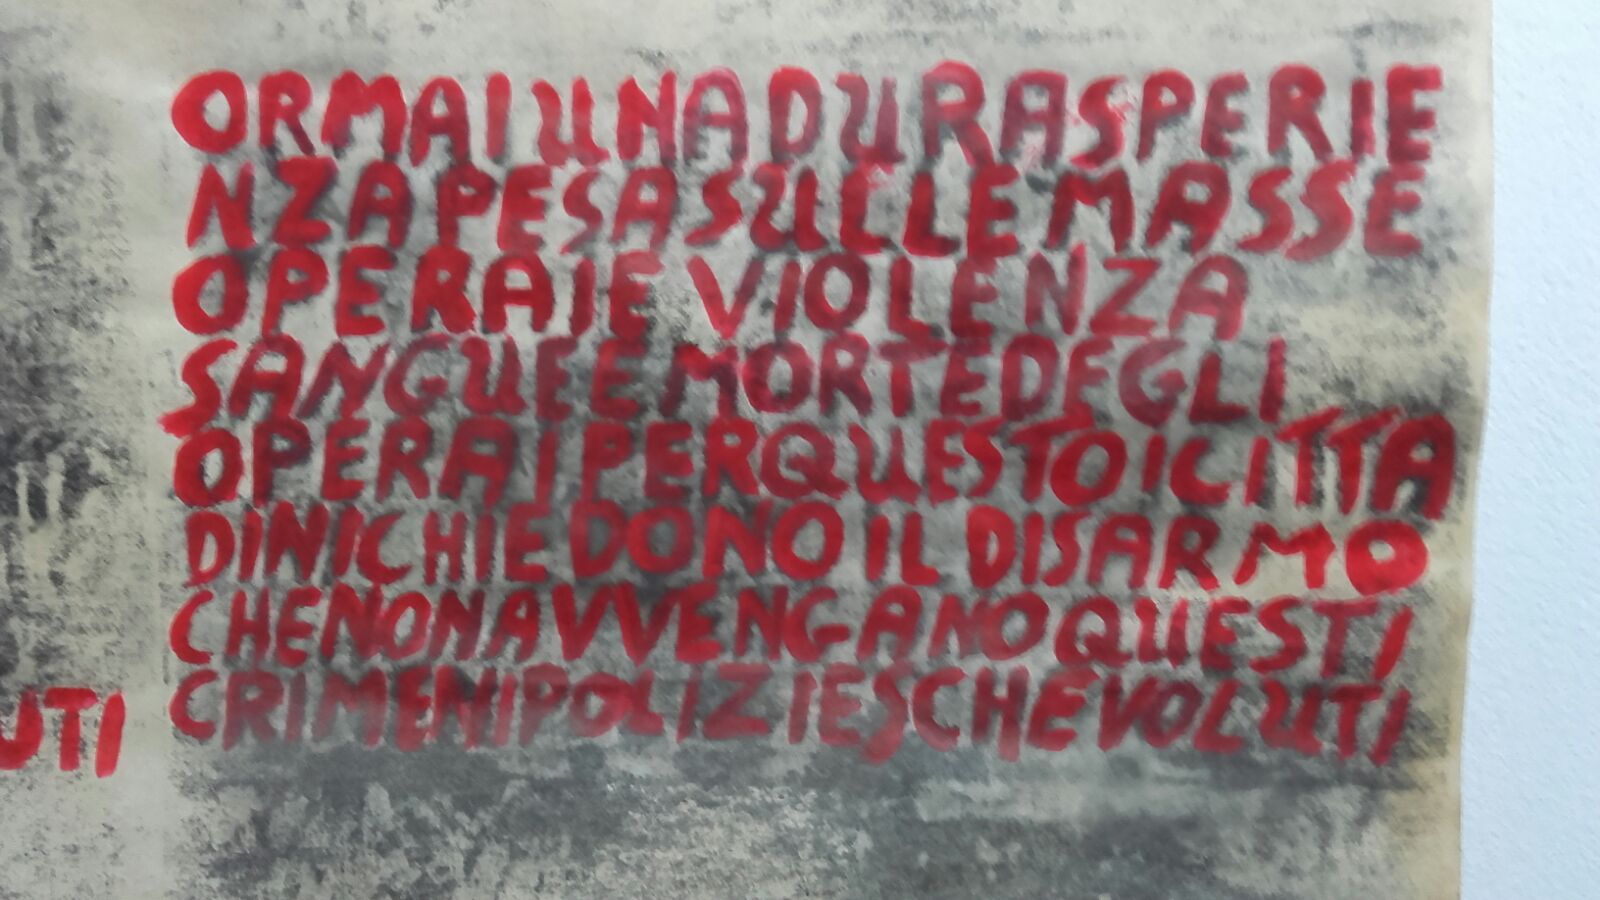 ORMAI UNA DURA SPERIE
NZA PESA SULLE MASSE
OPERAIE VIOLENZA
SANGUE E MORTE DEGLI
OPERAI PER QUESTO I CITTA
DINI CHIEDONO IL DISARMO
CHE NON AVVENGANO QUESTI
UTI CRIMENI POLIZIESCHE VOLUTI